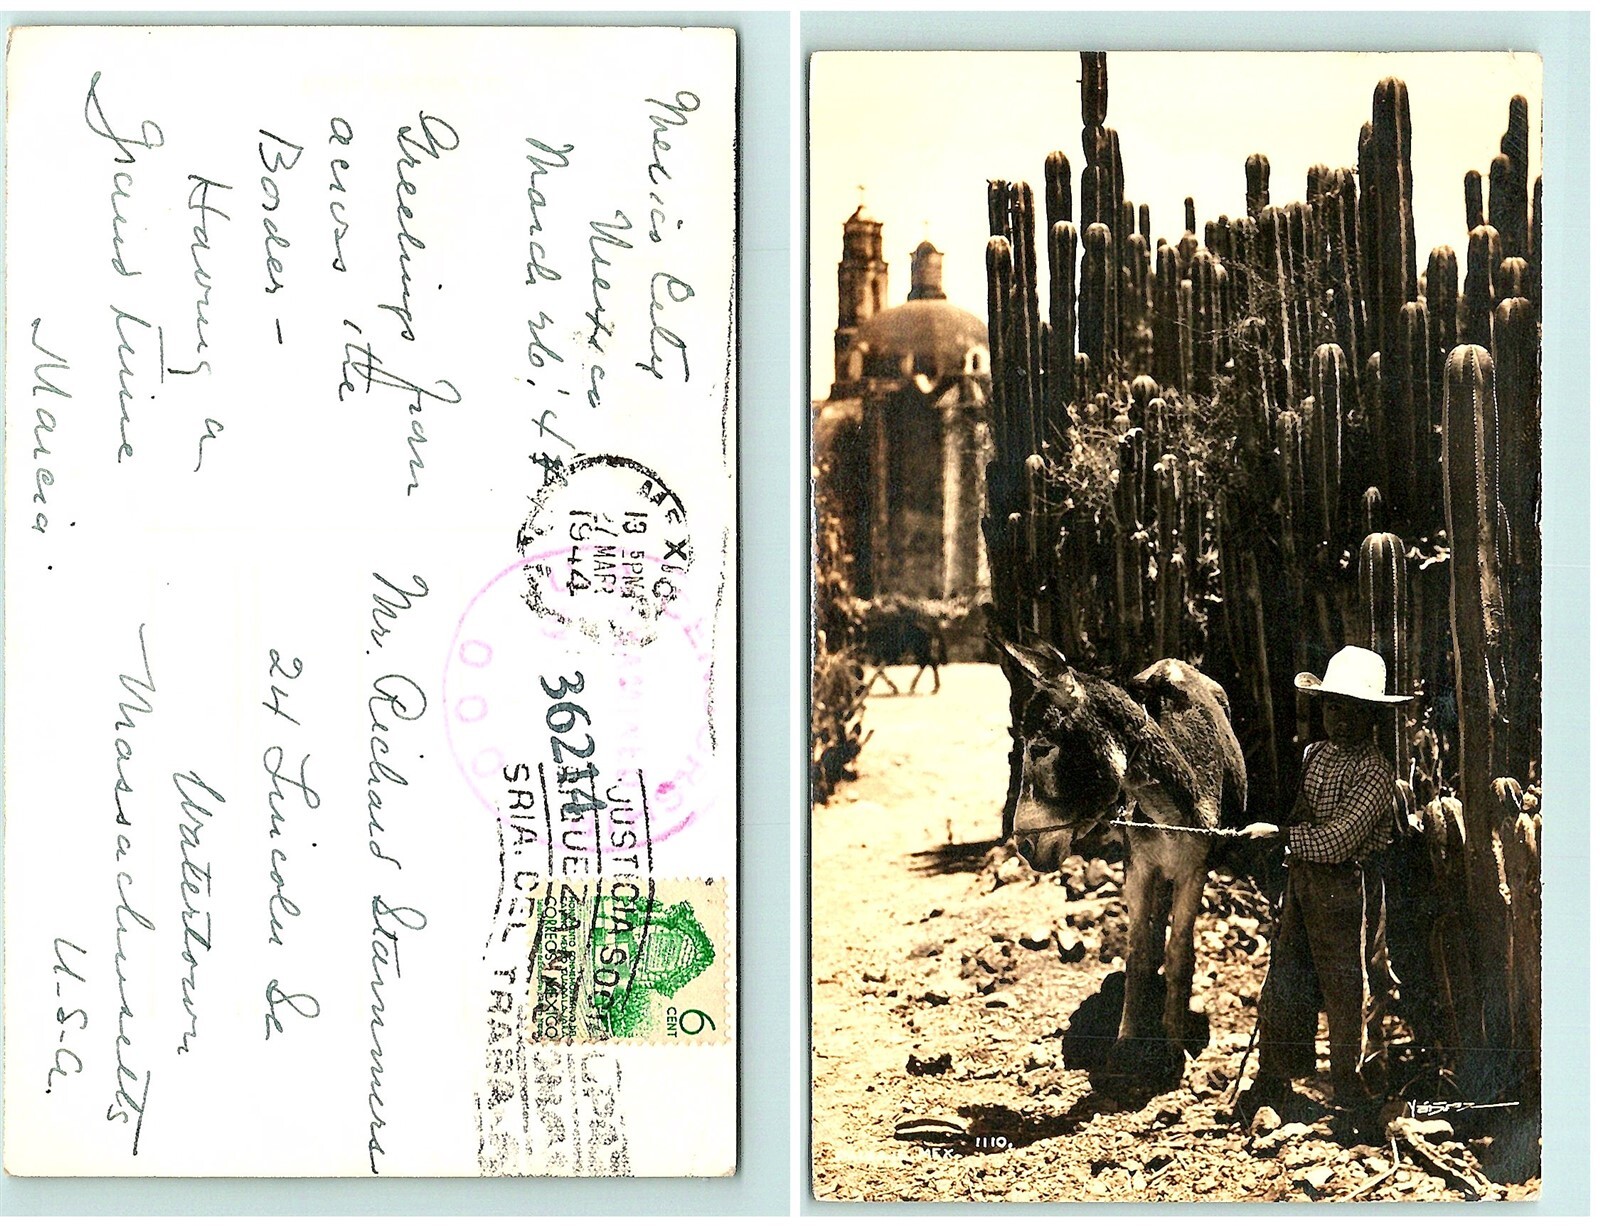 Mexico City
Mexico
March 26, '44
Greetings from
across the
Border -
Having a
Grand time
Marcia.
Mr. Richard Stammers
24 Lincoln St
Watertown
Massachusetts
U-S-A.
MEXICO
5PM
27 MAR
1944
36214
JUSTICIA SOCIAL
SRIA. DEL TRABAJO
6
CENT
CORREOS MEXICO
000
000
1110.
MEX.